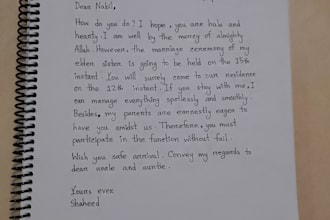 Dear Nabil,
How do you do? I hope, you are hale and
hearty. I am well by the mercy of almighty
Allah. However, the marriage ceremony of my
elder sister is going to be held on the 15th
instant. You will surely come to our residence
on the 12th instant. If you stay with me, I
can manage everything spotlessly and smoothly.
Besides, my parents are earnestly eager to
have you amidst us. Therefore, you must
participate in the function without fail.
Wish you safe arrival. Convey my regards to
dear uncle and auntie.
Yours ever
Shaheed